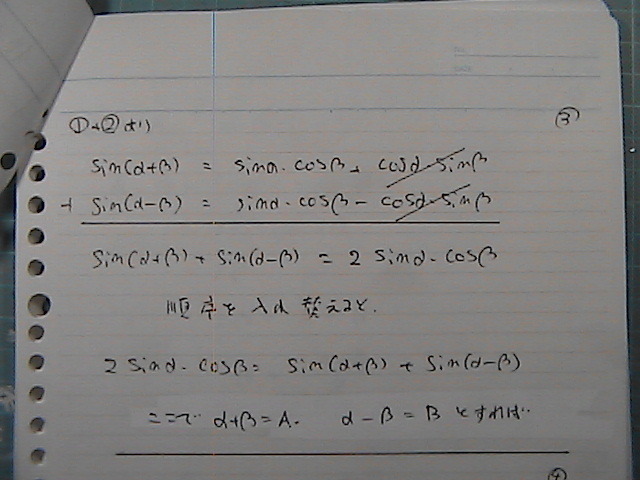 ③
①+②より
sin(α+β) = sinα・cosβ + cosα・sinβ
+ sin(α-β) = sinα・cosβ - cosα・sinβ
sin(α+β) + sin(α-β) = 2 sinα・cosβ
順序を入れ替えると.
2 sinα・cosβ = sin(α+β) + sin(α-β)
ここで α+β = A. α-β = B とすれば‥